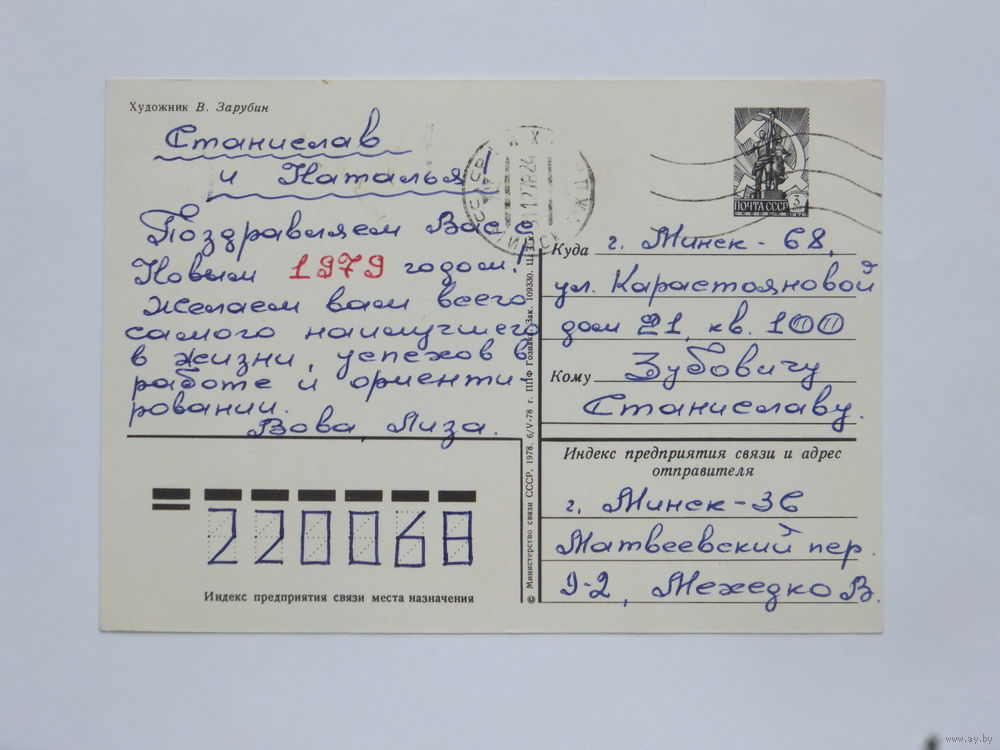 Художник В. Зарубин
Станислав
и Наталья!
Поздравляем Вас с
Новым 1979 годом!
Желаем вам всего
самого наилучшего
в жизни, успехов в
работе и ориенти-
ровании.
Вова, Лиза.
ПОЧТА СССР 3
1976
Куда г. Минск - 68,
ул. Карастояновой
дом 21, кв. 100
Кому Зубовичу
Станиславу.
Индекс предприятия связи и адрес
отправителя
г. Минск-36
Матвеевский пер.
9-2, Мехедко В.
220068
Индекс предприятия связи места назначения
© Министерство связи СССР, 1978. 6/V-78 г. ППФ Гознака. Зак. 109330.
www.ay.by